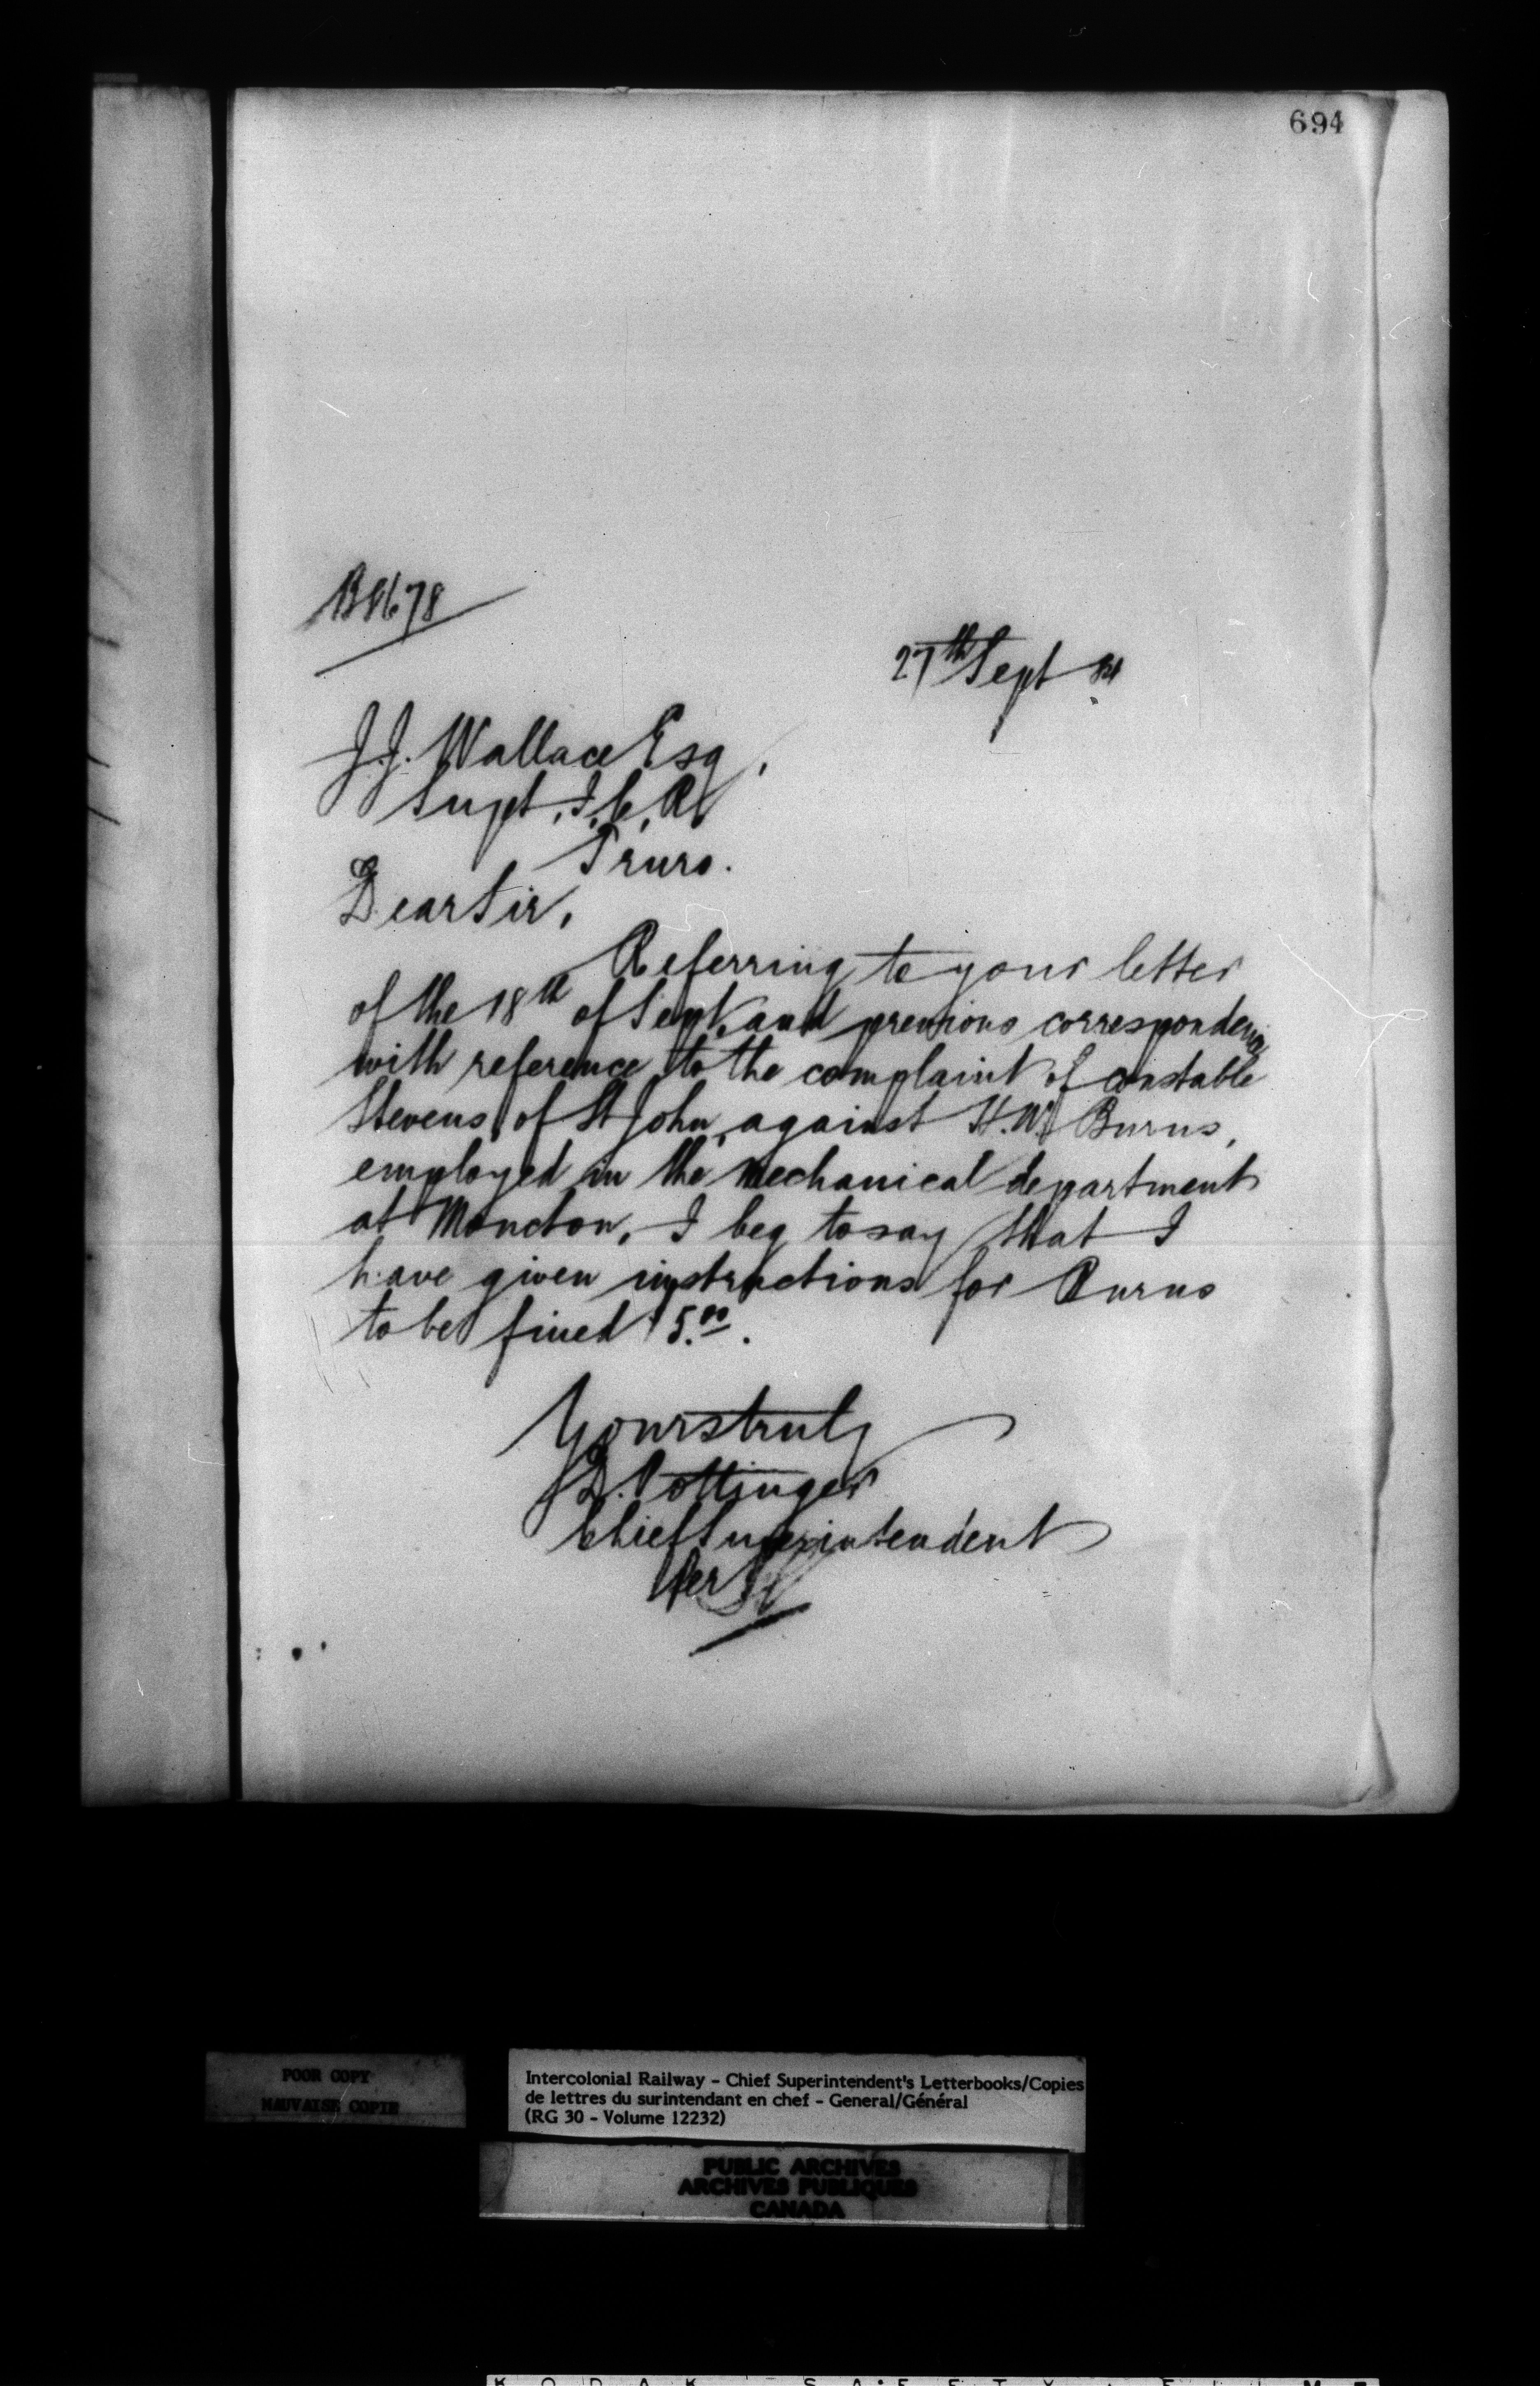 694
27th Sept 84
J.J. Wallace Esq,
Supt, I, C, R
Truro.
Dear Sir,
Referring to your letter
of the 18th of Sept, and previous correspondence
with reference to the complaint of constable
Stevens, of St John, against H. W. Burns,
employed in the mechanical department
at Moncton, I beg to say that I
have given instructions for Burns
to be fined 5.00.
Yours truly
D. Pottinger
Chief Superintendent
Per
POOR COPY
MAUVAISE COPIE
Intercolonial Railway - Chief Superintendent's Letterbooks/Copies
de lettres du surintendant en chef - General/Général
(RG 30 - Volume 12232)
PUBLIC ARCHIVES
ARCHIVES PUBLIQUES
CANADA